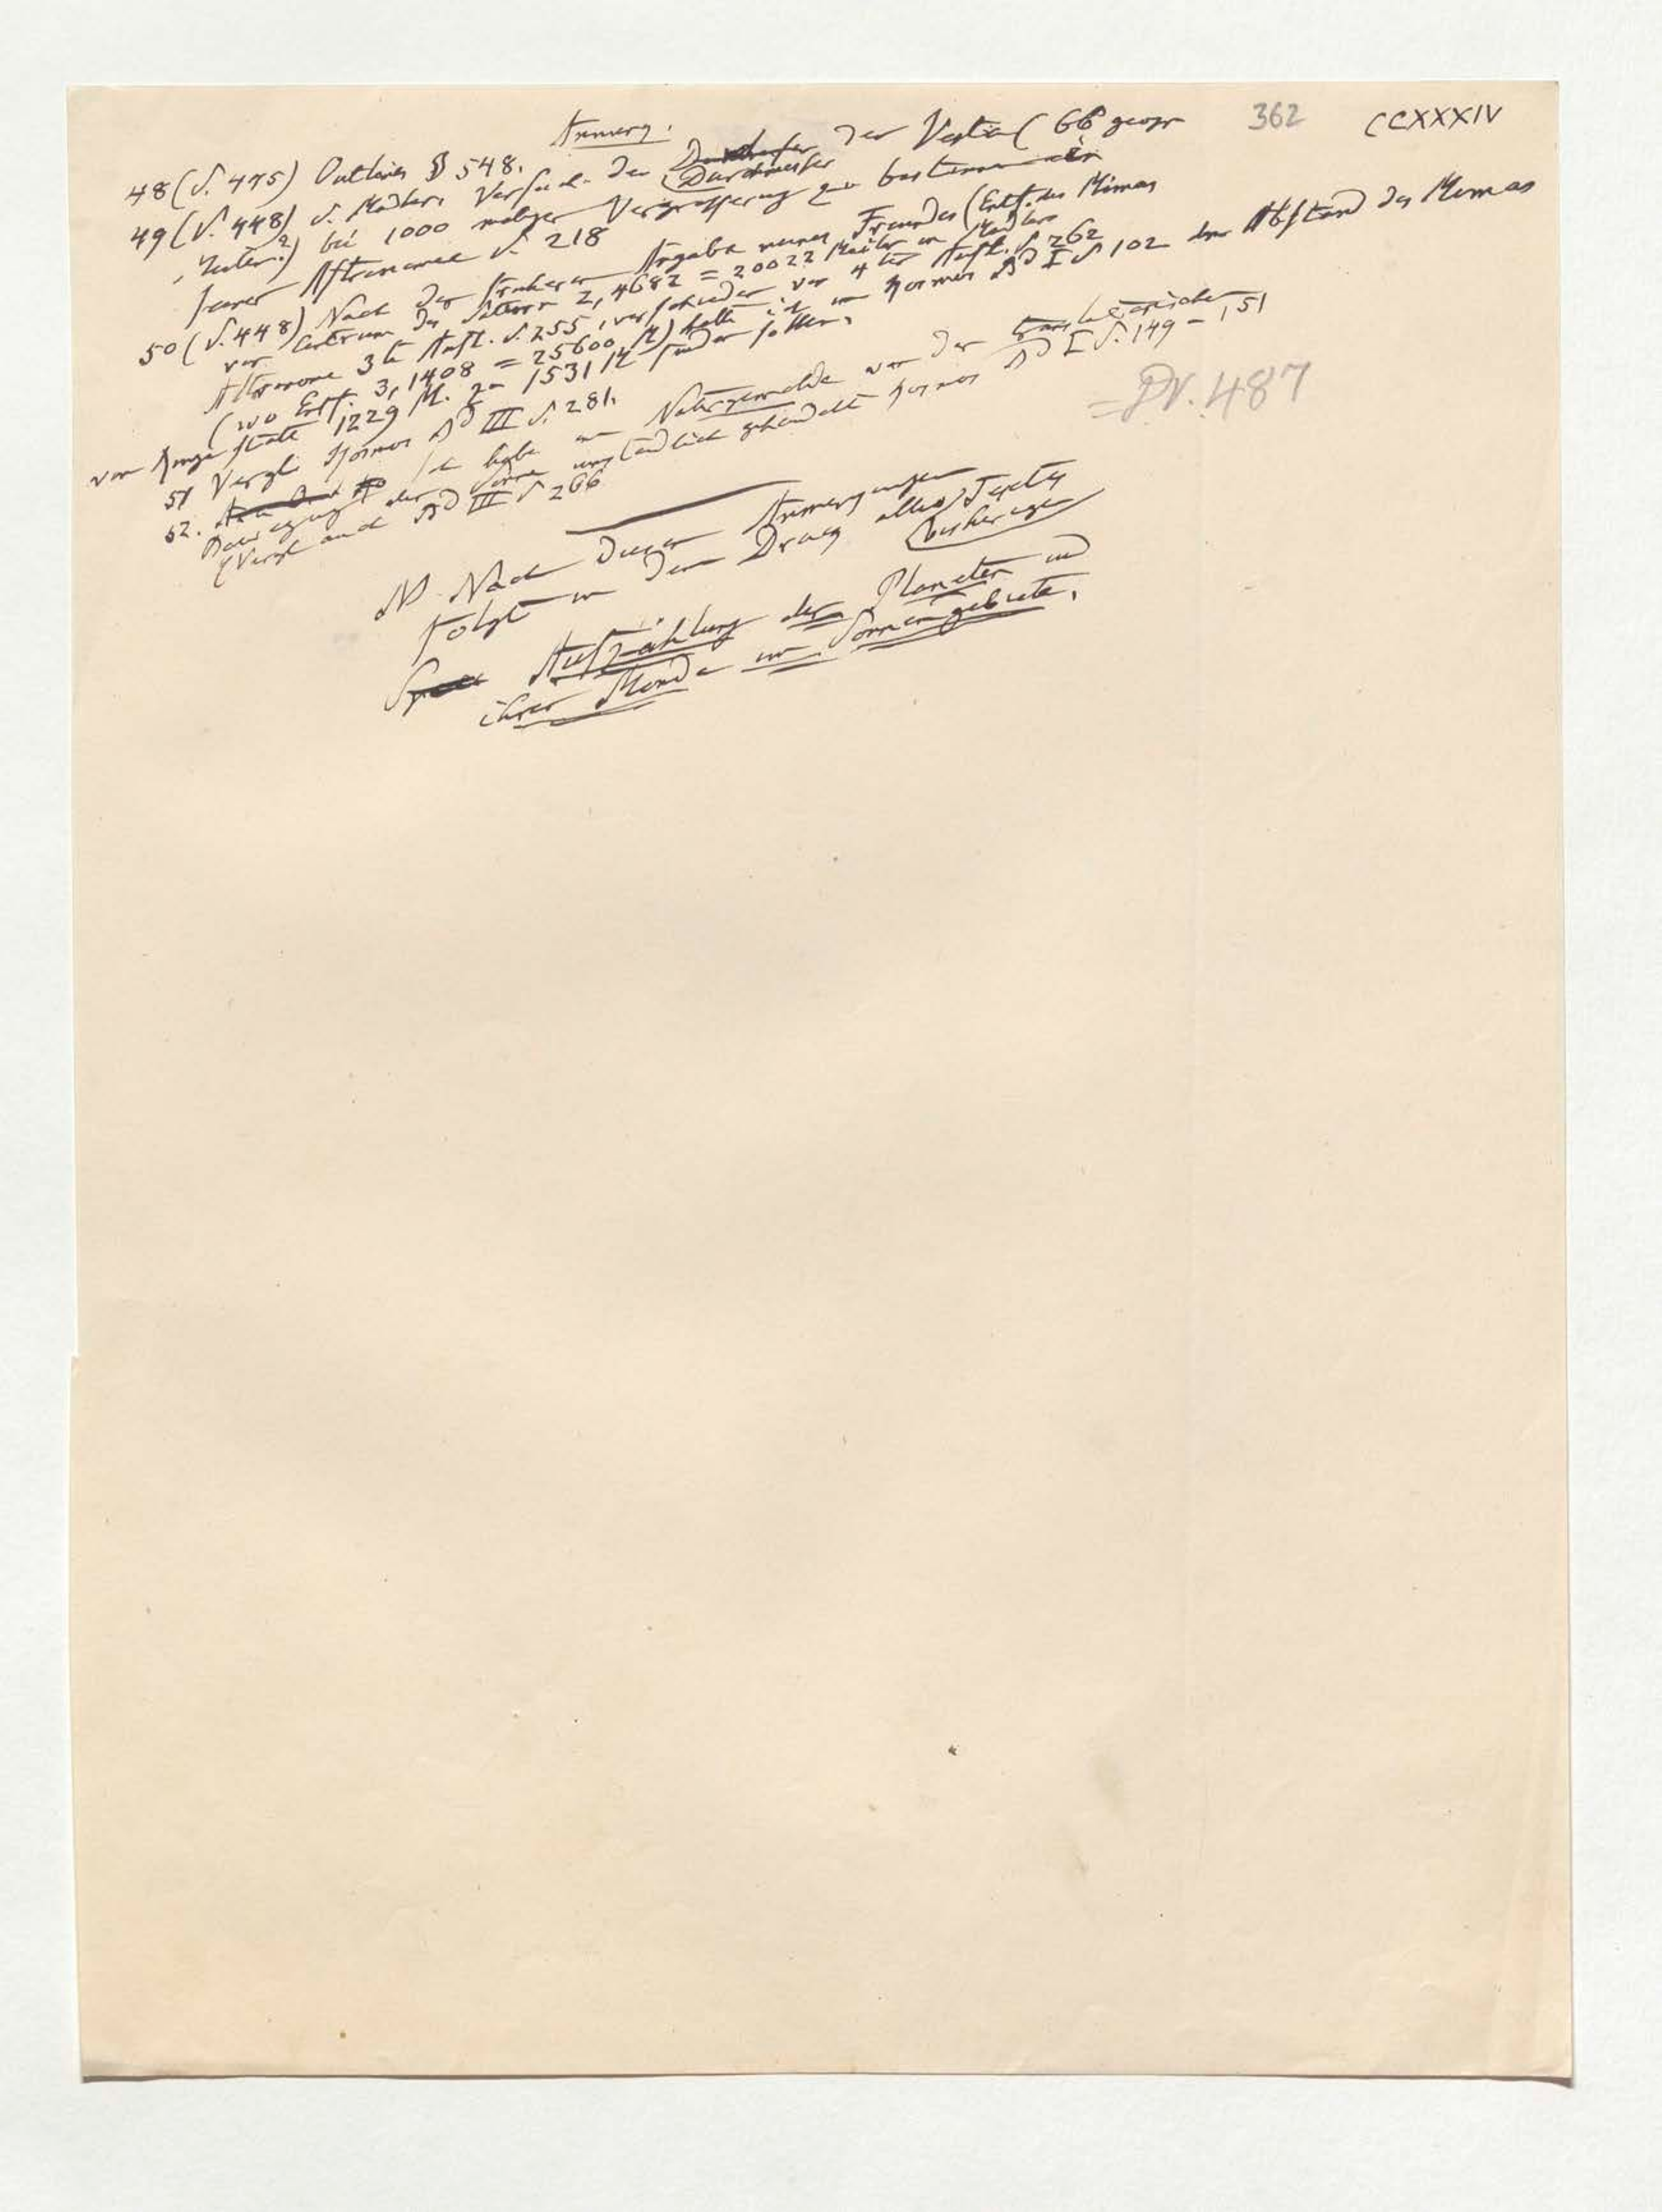 362 CCXXXIV
Anmerg.
48 (S. 475) Outlines § 548.
49 (S. 448) S. Mädlers Versuch den Durchmesser der Vesta (66 geogr
Meilen?) bei 1000 maliger Vergrösserung zu bestimmen in
seiner Astronomie S. 218
50 (S. 448) Nach der früheren Angabe meines Freundes (Entf. des Mimas
vom Centrum des Saturn 2,4682 = 20022 Meilen in Mädlers
Astronomie 3te Aufl. S. 255, verschieden von 4ter Aufl. S. 262
(wo Entf. 3,1408 = 25600 M) hätte ich im Kosmos Bd I S 102 den Abstand des Mimas
vom Ringe statt 1229 M. zu 1531 M finden sollen.
51 Vergl. Kosmos Bd III S. 281.
52. Ich habe im Naturgemälde von der translatorischen
Bewegung der Sonne umständlich gehandelt Kosmos Bd I S. 149 – 151
(Vergl auch Bd III S 266
= Dr. 487
NB. Nach diesen Anmerkungen
folgt in dem Druck alles Textes
(bisherigen)
Aufzählung der Planeten und
ihrer Monde im Sonnengebiete.